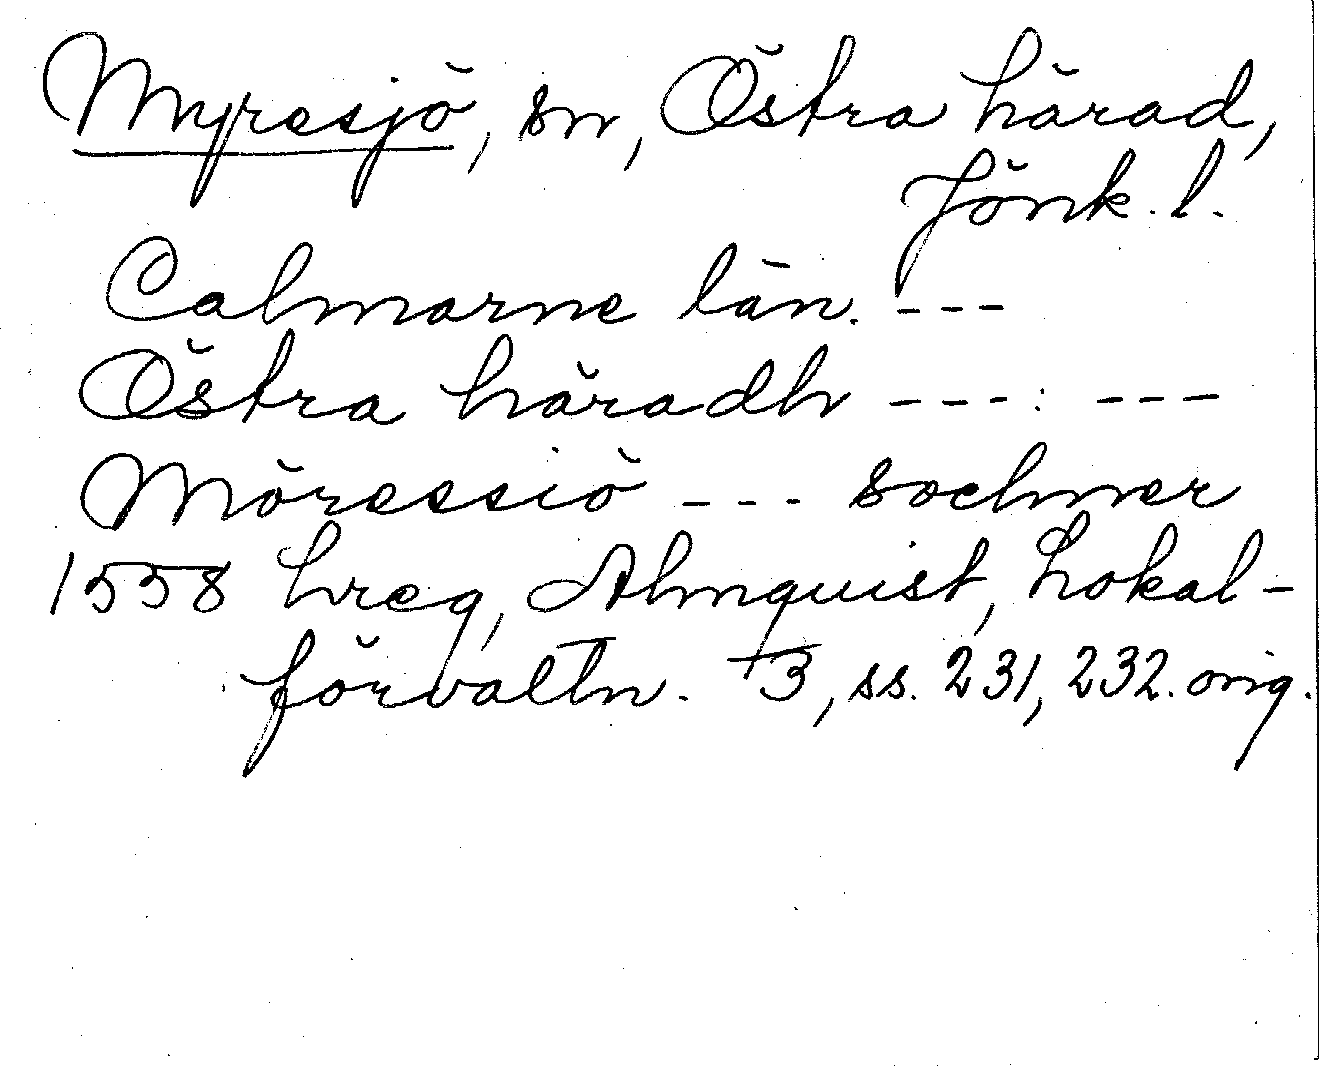 Myresjö, sn, Östra härad,
Jönk. l.
Calmarne län. ---
Östra häradh ---: ---
Möressiö --- sochner
1558 hreg, Almquist, Lokal-
förvaltn. 3, ss. 231, 232. orig.